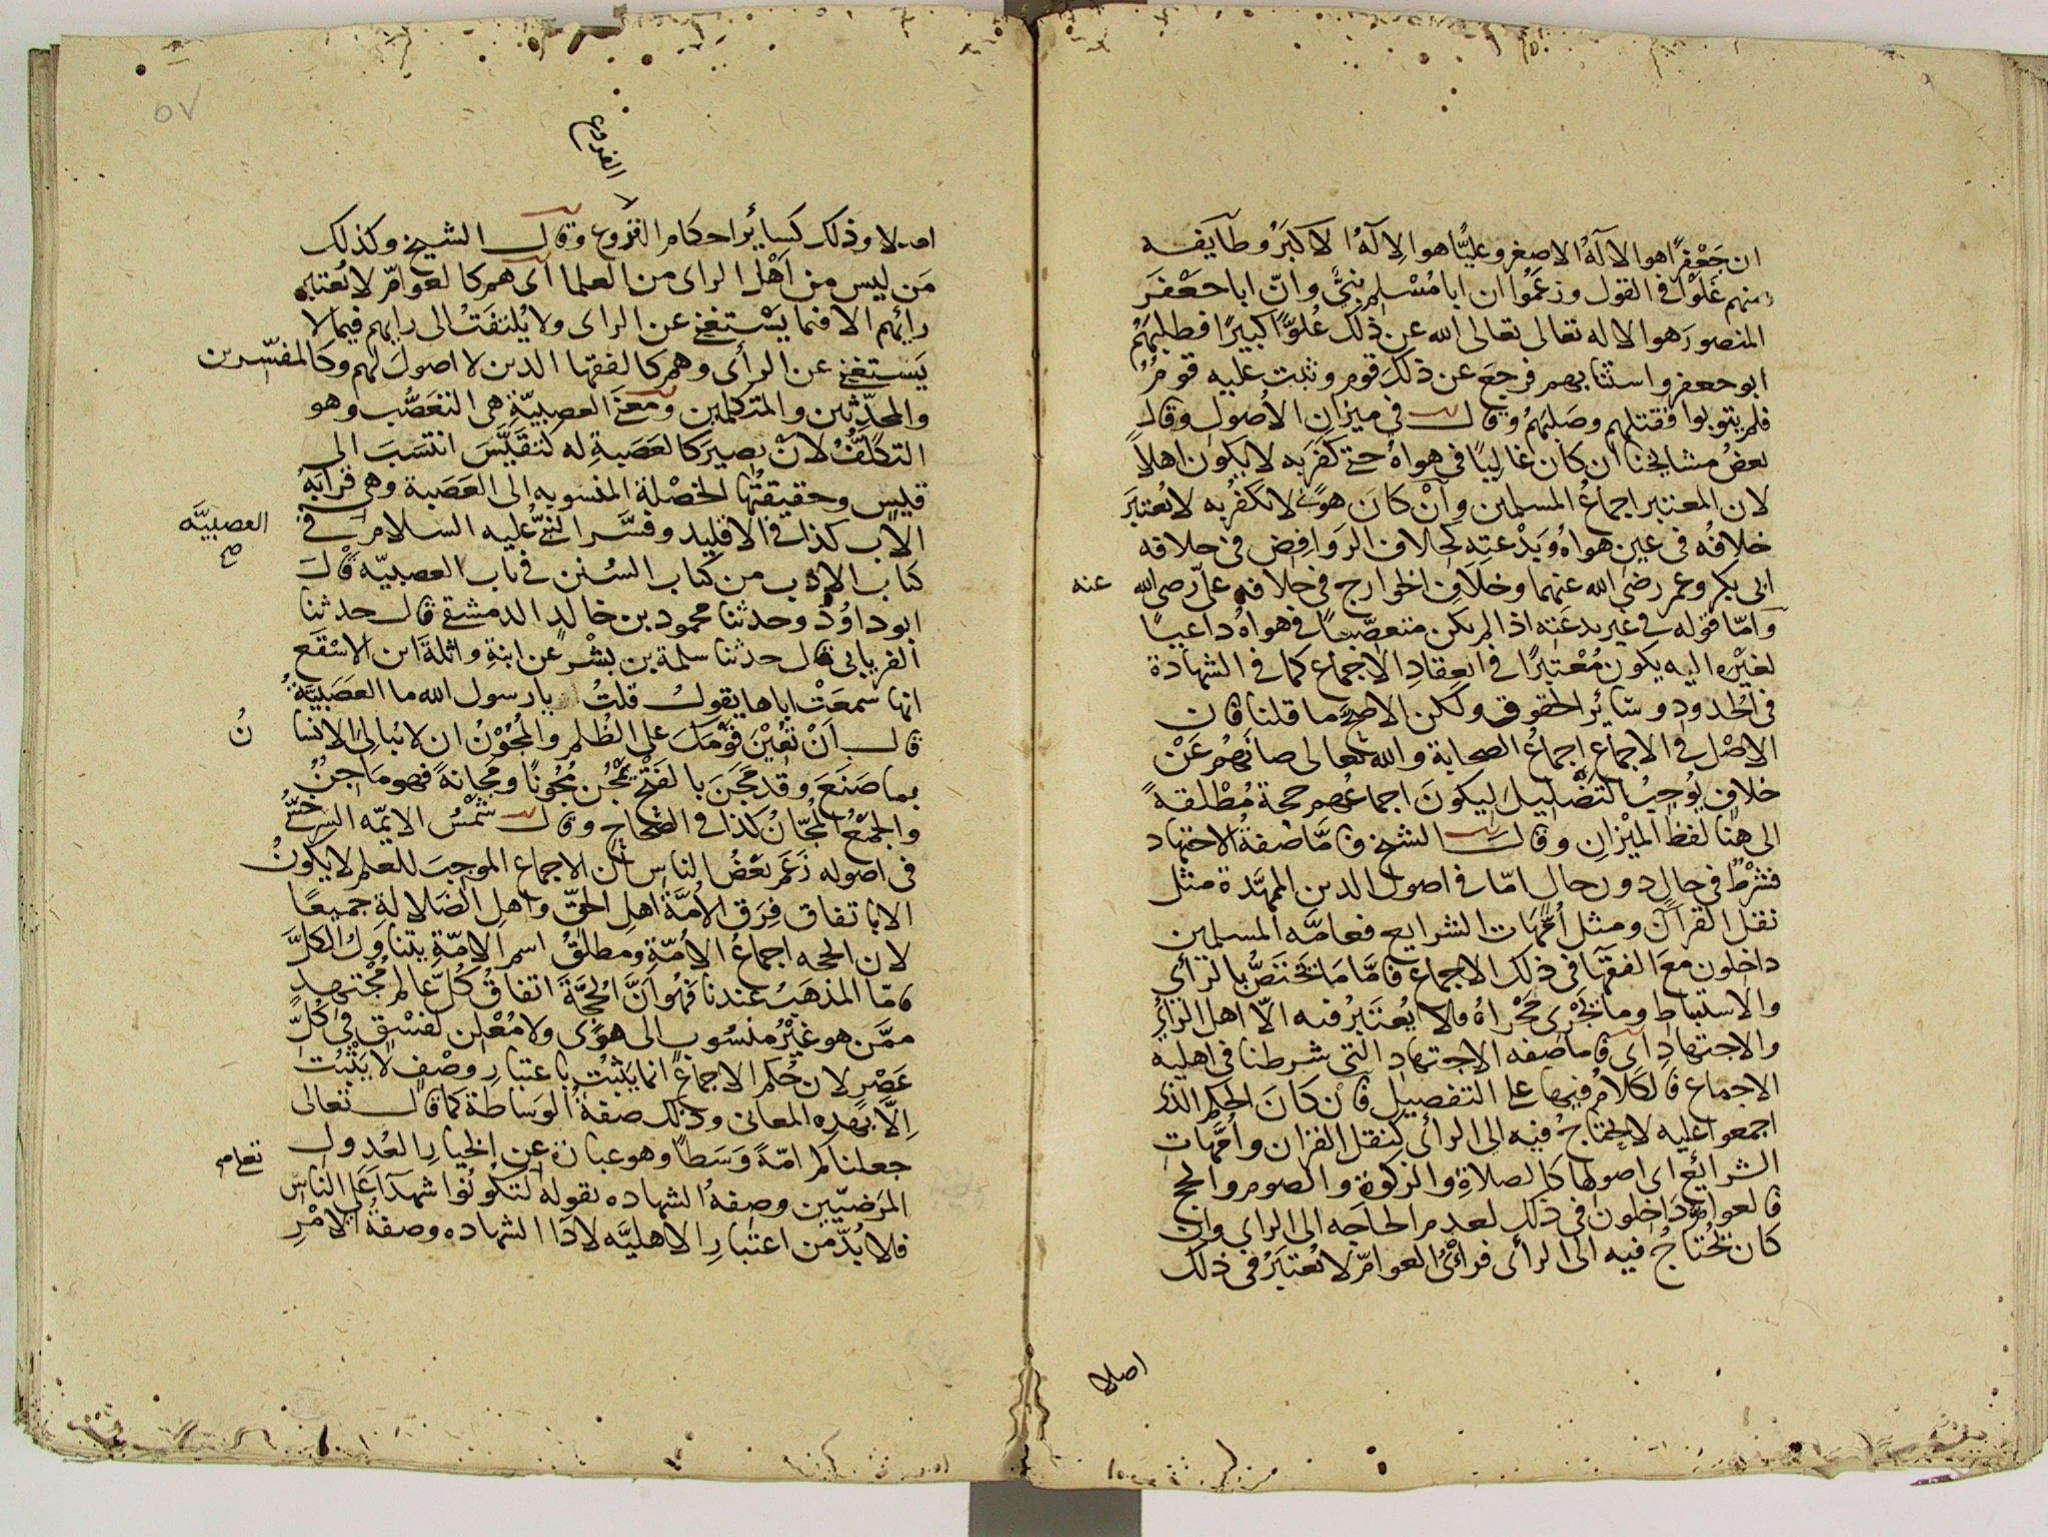 ان جَعْفرًا هو الاَلٰهُ الاصغر وعليًّا هو الاِلٰهُ الاكبَرُ وطايَفه
منهم غَلَوْا في القول وزعَمُوا ان ابا مُسْلم نبىٌّ وانّ ابا جَعْفَر
المنصورَ هو الاله تعالى تعالى الله عن ذٰلك عُلوًّا كبيرًا فطلبهُم
ابو جعفر واستتابهم فرجعَ عن ذٰلكَ قوم وثبت عليه قومٌ
فلم يتوبوا فقتلهم وصَلبَهُم وقال في ميزان الاُصول وقال
بعضُ مشايخنا ان كان غاليًا في هواهُ حتى كفَرَ به لا يكون اهلاً
لان المعتبر اجماعُ المسلمين وانْ كانَ هوًى لا نكفّر به لا يُعتبَر
خلافُه في عين هواهُ وبدْعتِه كخلاف الروَافِض في خلافه
ابى بكر وعمر رضي الله عنهما وخلَافِ الخوارج في خلافه علىّ رضى الله عنه
وَامّا قوله في غير بدعَتِه اذا لم يكن متعصّبًا في هواهُ داعيًا
لغيْره اليه يكون مُعْتبَرًا في انعِقادِ الاجماع كما في الشهادة
في الحُدود وسَائرِ الحقوق ولكن الاصحّ ما قلنا فان
الاصْل في الاجماع اجماعُ الصحابة والله تعالى صانَهُم عَنْ
خلافٍ يُوجبُ التضليلَ ليكونَ اجماعُهم حجة مُطْلقةً
الى هنا لفظ الميْزان وقال الشيخ فامَّا صفةُ الاجتهاد
فشرْطٌ في حالٍ دون حال امّا في اصول الدين الممهَّدة مثل
نقل القرآن ومثل اُمّهات الشرايع فعامَّه المسلمين
داخلون معَ الفقهَا في ذلك الاجماع فامَّا مَا يختصُّ بالرّأى
والاستنباط وما يجْرى مَجْراهُ فلا يُعتَبرُ فيه الاّ اهل الرّأي
والاجتهادِ اى فاما صفه الاجتهاد التى شرطنا في اهليه
الاجماع فالكلامُ فيها على التفصيل فانْ كانَ الحكم الذى
اجمعوا عليه لا يحتاجُ فيه الى الرأى كنقل القران واُمَّهات
الشرائع اى اصولها كالصلاةِ والزكوة والصوم والحج
فالعوامّ داخلون في ذلك لعدم الحاجه الى الراي وان
كان يحُتاجُ فيه الى الرأى فرأىُ العوامّ لا يُعتبَرُ في ذلك
اصلا
٥٧
الفروع
اصلا وذلك كسائر احكام الفروع وقال الشيخ وكذلك
مَن ليس من اَهْل الراى من العلما اى هم كالعوامّ لا يُعتبر
رائهم الا فيما يَسْتغنى عن الراى ولا يُلتفَتُ الى رايهم فيما لا
يَستغنى عن الرأى وهم كالفقها الذين لا اصولَ لهم وكالمفسّرين
والمحدّثين والمتكلمين ومعنى العصبيّةِ هى التعَصُّب وهو
التكلّفُ لانْ يصيرَ كالعَصَبةِ له كتقَيَّسَ انتسَبَ الى
قيس وحقيقتُها الخصْلة المنسوبه الى العَصَبة وهى قرابَة
الاَب كذا في الاقليد وفسَّر النبىّ عليه السلام في العصبيَّه صح
كتاب الادب من كتاب السُنن في باب العصبيّه قال
ابو داوُدَ وحدثنا محمود بن خالد الدمشقى قال حدثنا
الفريابى قال حدثنا سلمة بن بشْرٍ عن ابنةِ واثلةَ ابن الاسْقَع
انها سمعَتْ اباها يقولُ قلتُ يا رسول الله ما العَصَبيّةُ
قال اَنْ تُعِيْنَ قوْمَكَ على الظُلم والمُجُوْنُ ان لا يُبالىَ الانسانُ
بما صَنَعَ وقد مَجَنَ بالفَتْح يَمْجُن مُجُونًا ومَجانةً فهو ماجنٌ
والجمْعُ المُجّانُ كذا في الصّحاح وقال شمْسُ الايمّه السرخسىُّ
في اصوله زعَم بعْضُ الناس انّ الاجماع الموجبَ للعلم لا يكونُ
الا باتفاق فِرَق الاُمَّة اهلِ الحقّ واهلِ الضَلالةِ جميعًا
لان الحجه اجماعُ الامّة ومطلقُ اسم الامّة يتناوَلُ الكلَّ
فامّا المذهَبُ عندنا فهُو اَنَّ الحجَّةَ اتفاقُ كُلّ عالم مُجْتهد
ممَّن هو غيْرُ منسُوبٍ الى هوًى ولا مُعْلِن لفسْقٍ في كُلّ
عَصْر لان حُكم الاجماع انما يَثبُت باعتبارِ وصْفٍ لا يَثبُت
اِلاّ بهذه المعانى وذلك صفةُ الوَساطة كما قال تعالى
جعلناكم امّةً وَسَطًا وهو عبارة عن الخيارِ العُدول
المرَضيّين وصِفهُ الشهاده بقوله لتكونُوا شهدَاَ على الناس
فلا بُدّ من اعتبارِ الاهليَّه لادَا الشهاده وصفةُ الامْرِ